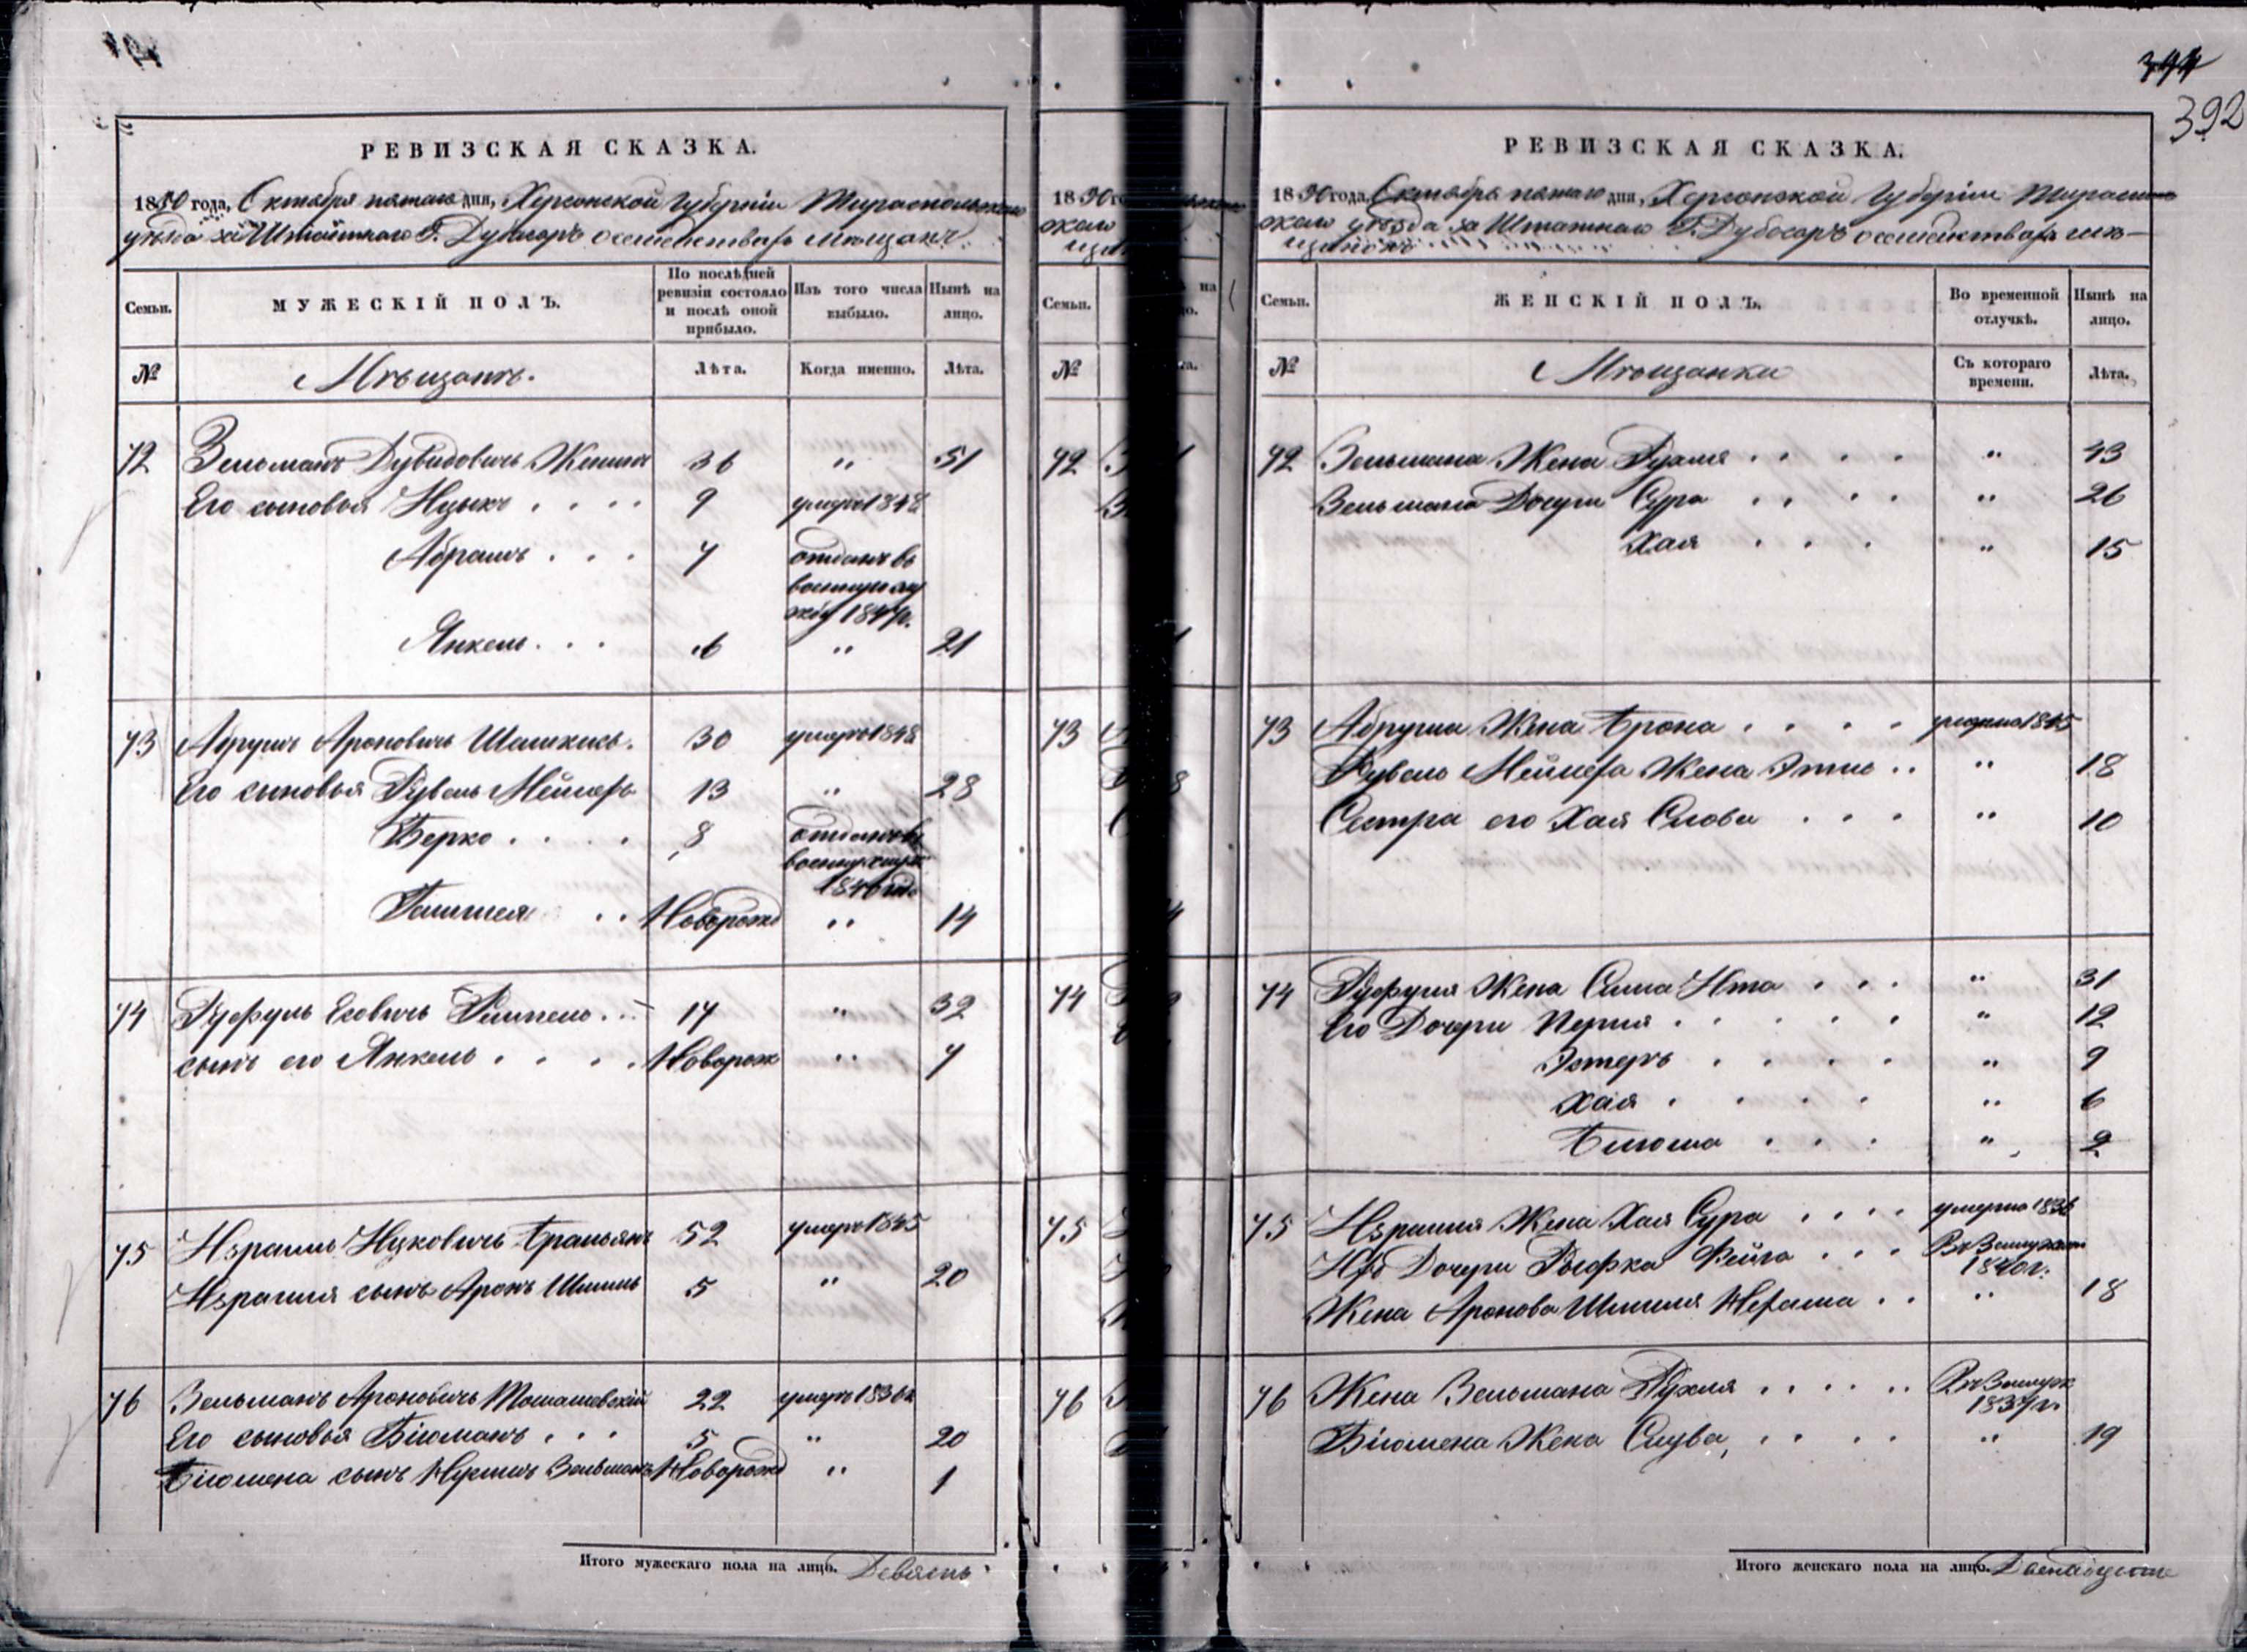 392
РЕВИЗСКАЯ СКАЗКА.
1850 года, Октября пятаго дня, Херсонской Губерніи Тираспольскаго
уѣзда заштатнаго Г. Дубосаръ о мѣщанъ.
Семьи.
МУЖЕСКІЙ ПОЛЪ.
По послѣдней ревизіи состояло и послѣ оной прибыло.
Изъ того числа выбыло.
Нынѣ на лицо.
№
Мѣщанъ.
Лѣта.
Когда именно.
Лѣта.
72 Зельманъ Дувидовичь 36 " 51
Его сыновья Ицыкъ . . . . 9 умеръ 1848
Абрамъ . . . 7 отданъ въ
военную слу
жбу 184
Янкель . . . 6 " 21
73 Абрумъ Ароновичь Шашкись. 30 умеръ 1848
Его сыновья Рувель Мейлеръ 13 " 28
Берко . . . . 8 отданъ въ
военну служ
1846 года
. . Новорожд " 14
74 Руфуль . . 17 " 32
сынъ его Янкель . . . . Новорож " 7
75 Израиль Ицковичь 52 умеръ 1845
Израиля сынъ Аронъ Шмиль 5 " 20
76 Зельманъ Ароновичь Томашевскій 22 умеръ 1836
Его сыновья Біюманъ . . . 5 " 20
Біюмена сынъ Зельманъ Новорожд " 1
Итого мужескаго пола на лицо. Девять
18
Семьи.
№
72
73
74
75
76
РЕВИЗСКАЯ СКАЗКА.
1850 года Октября пятаго дня, Херсонской Губерніи Тирасполь
скаго уѣзда заштатнаго Г. Дубосаръ о мѣ-
щанокъ
Семьи.
ЖЕНСКІЙ ПОЛЪ.
Во временной отлучкѣ.
Нынѣ на лицо.
№
Мѣщанки
Съ котораго времени.
Лѣта.
72 Зельмана Жена Рухля . . . . " 43
Зельмана Дочери Сура . . . . " 26
Хая . . . " 15
73 Абрума Жена Брона . . . . умерла 1845
Рувель Мейлера Жена Этль . . " 18
Сестра его Хая Слова . . . " 10
74 Руфуля Жена Сима Ита . . . " 31
Его Дочери Перля . . . . . " 12
Эстеръ . . . . " 9
Хая . . . . . " 6
Блюма . . . " 2
75 Израиля Жена Хая Сура . . . . умерла 1836
Дочери Рыфка Фейга . . . Въ Замужест
1840 г.
Жена Аронова Шмиля . . " 18
76 Жена Зельмана Рухля . . . . . . Въ Замуж
1837 г.
Біюмена Жена Слува, . . . . " 19
Итого женскаго пола на лицо. Двенадцать